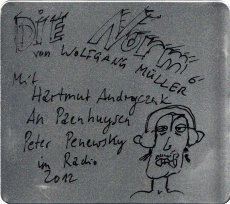 DIE NORM"
von WOLFGANG MÜLLER
Mit
Hartmut Andryczuk
An Paenhuysen
Peter Penewsky
im Radio
2012